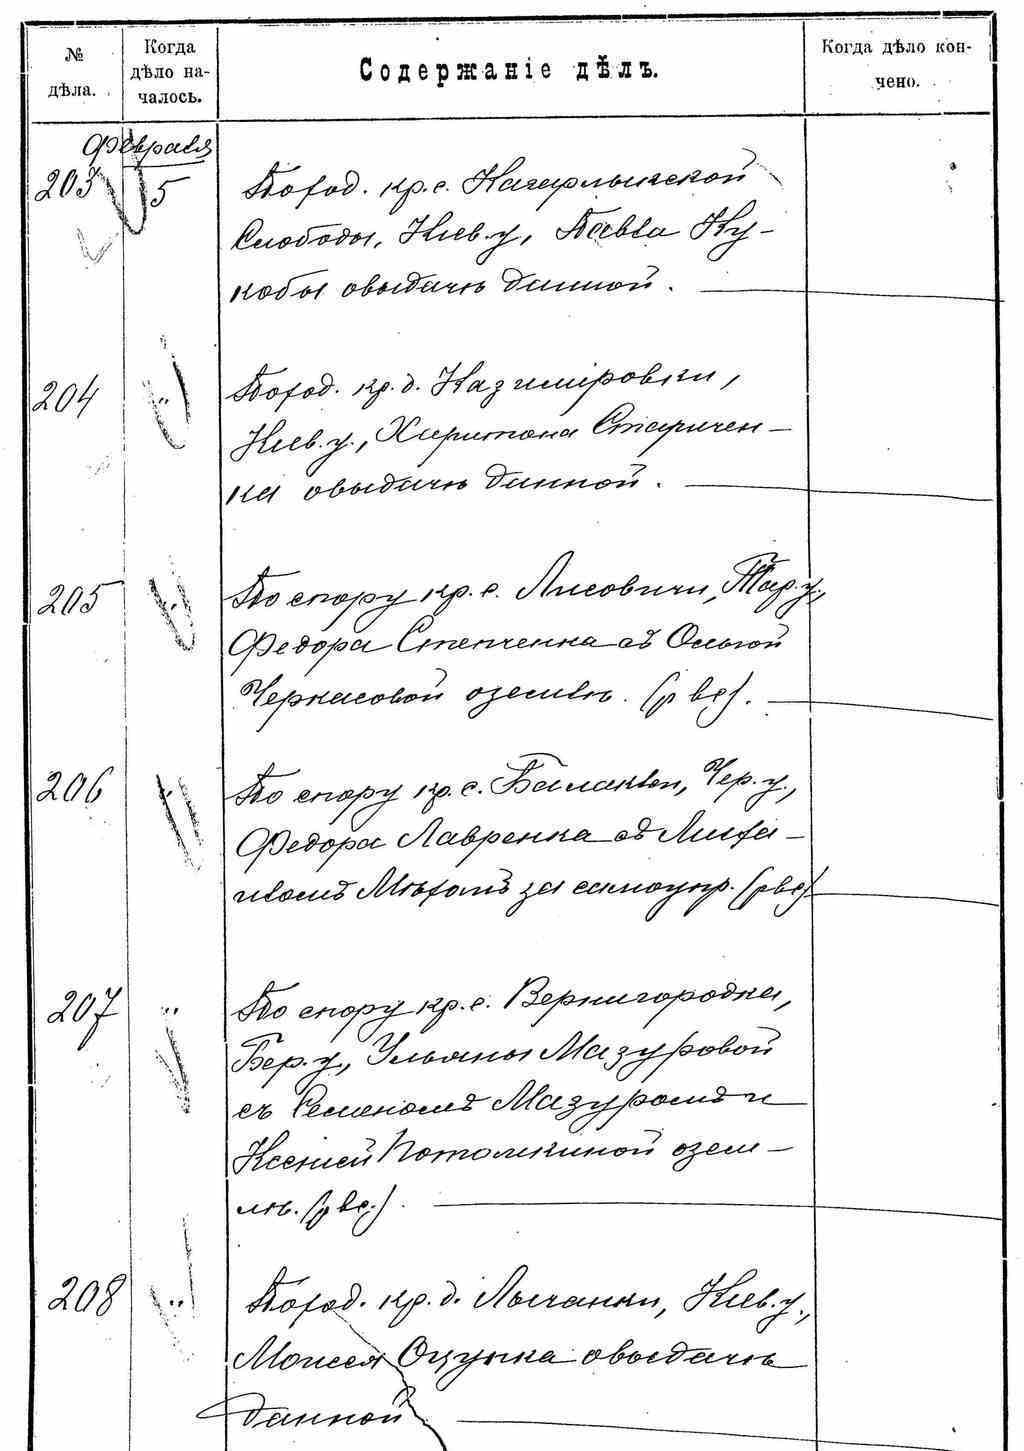 № дѣла.
Когда дѣло началось.
Содержаніе дѣлъ.
Когда дѣло кончено.
Февраля
203 5 По ход. кр. с. Кагарлыкской
Слободы, Кіев. у., Павла Ку-
кобы о выдачѣ данной.
204 " По ход. кр. д. Казиміровки,
Кіев. у., Харитона Старичен-
ка о выдачѣ данной.
205 " По спору кр. с. Лисовичи, Тар. у.,
Федора Степченка съ Ольгой
Черкасовой о землѣ.
206 " По спору кр. с. Балаклеи, Чер. у.,
Федора Лавренка съ
за самоупр.
207 " По спору кр. с. Вернигородка,
Бер. у., Ульяны Мазуровой
съ Семеномъ Мазуромъ и
Ксеніей Потомкиной о зем-
лѣ.
208 " По ход. кр. д. Лычанки, Кіев. у.,
Моисея Оцупка о выдачѣ
данной